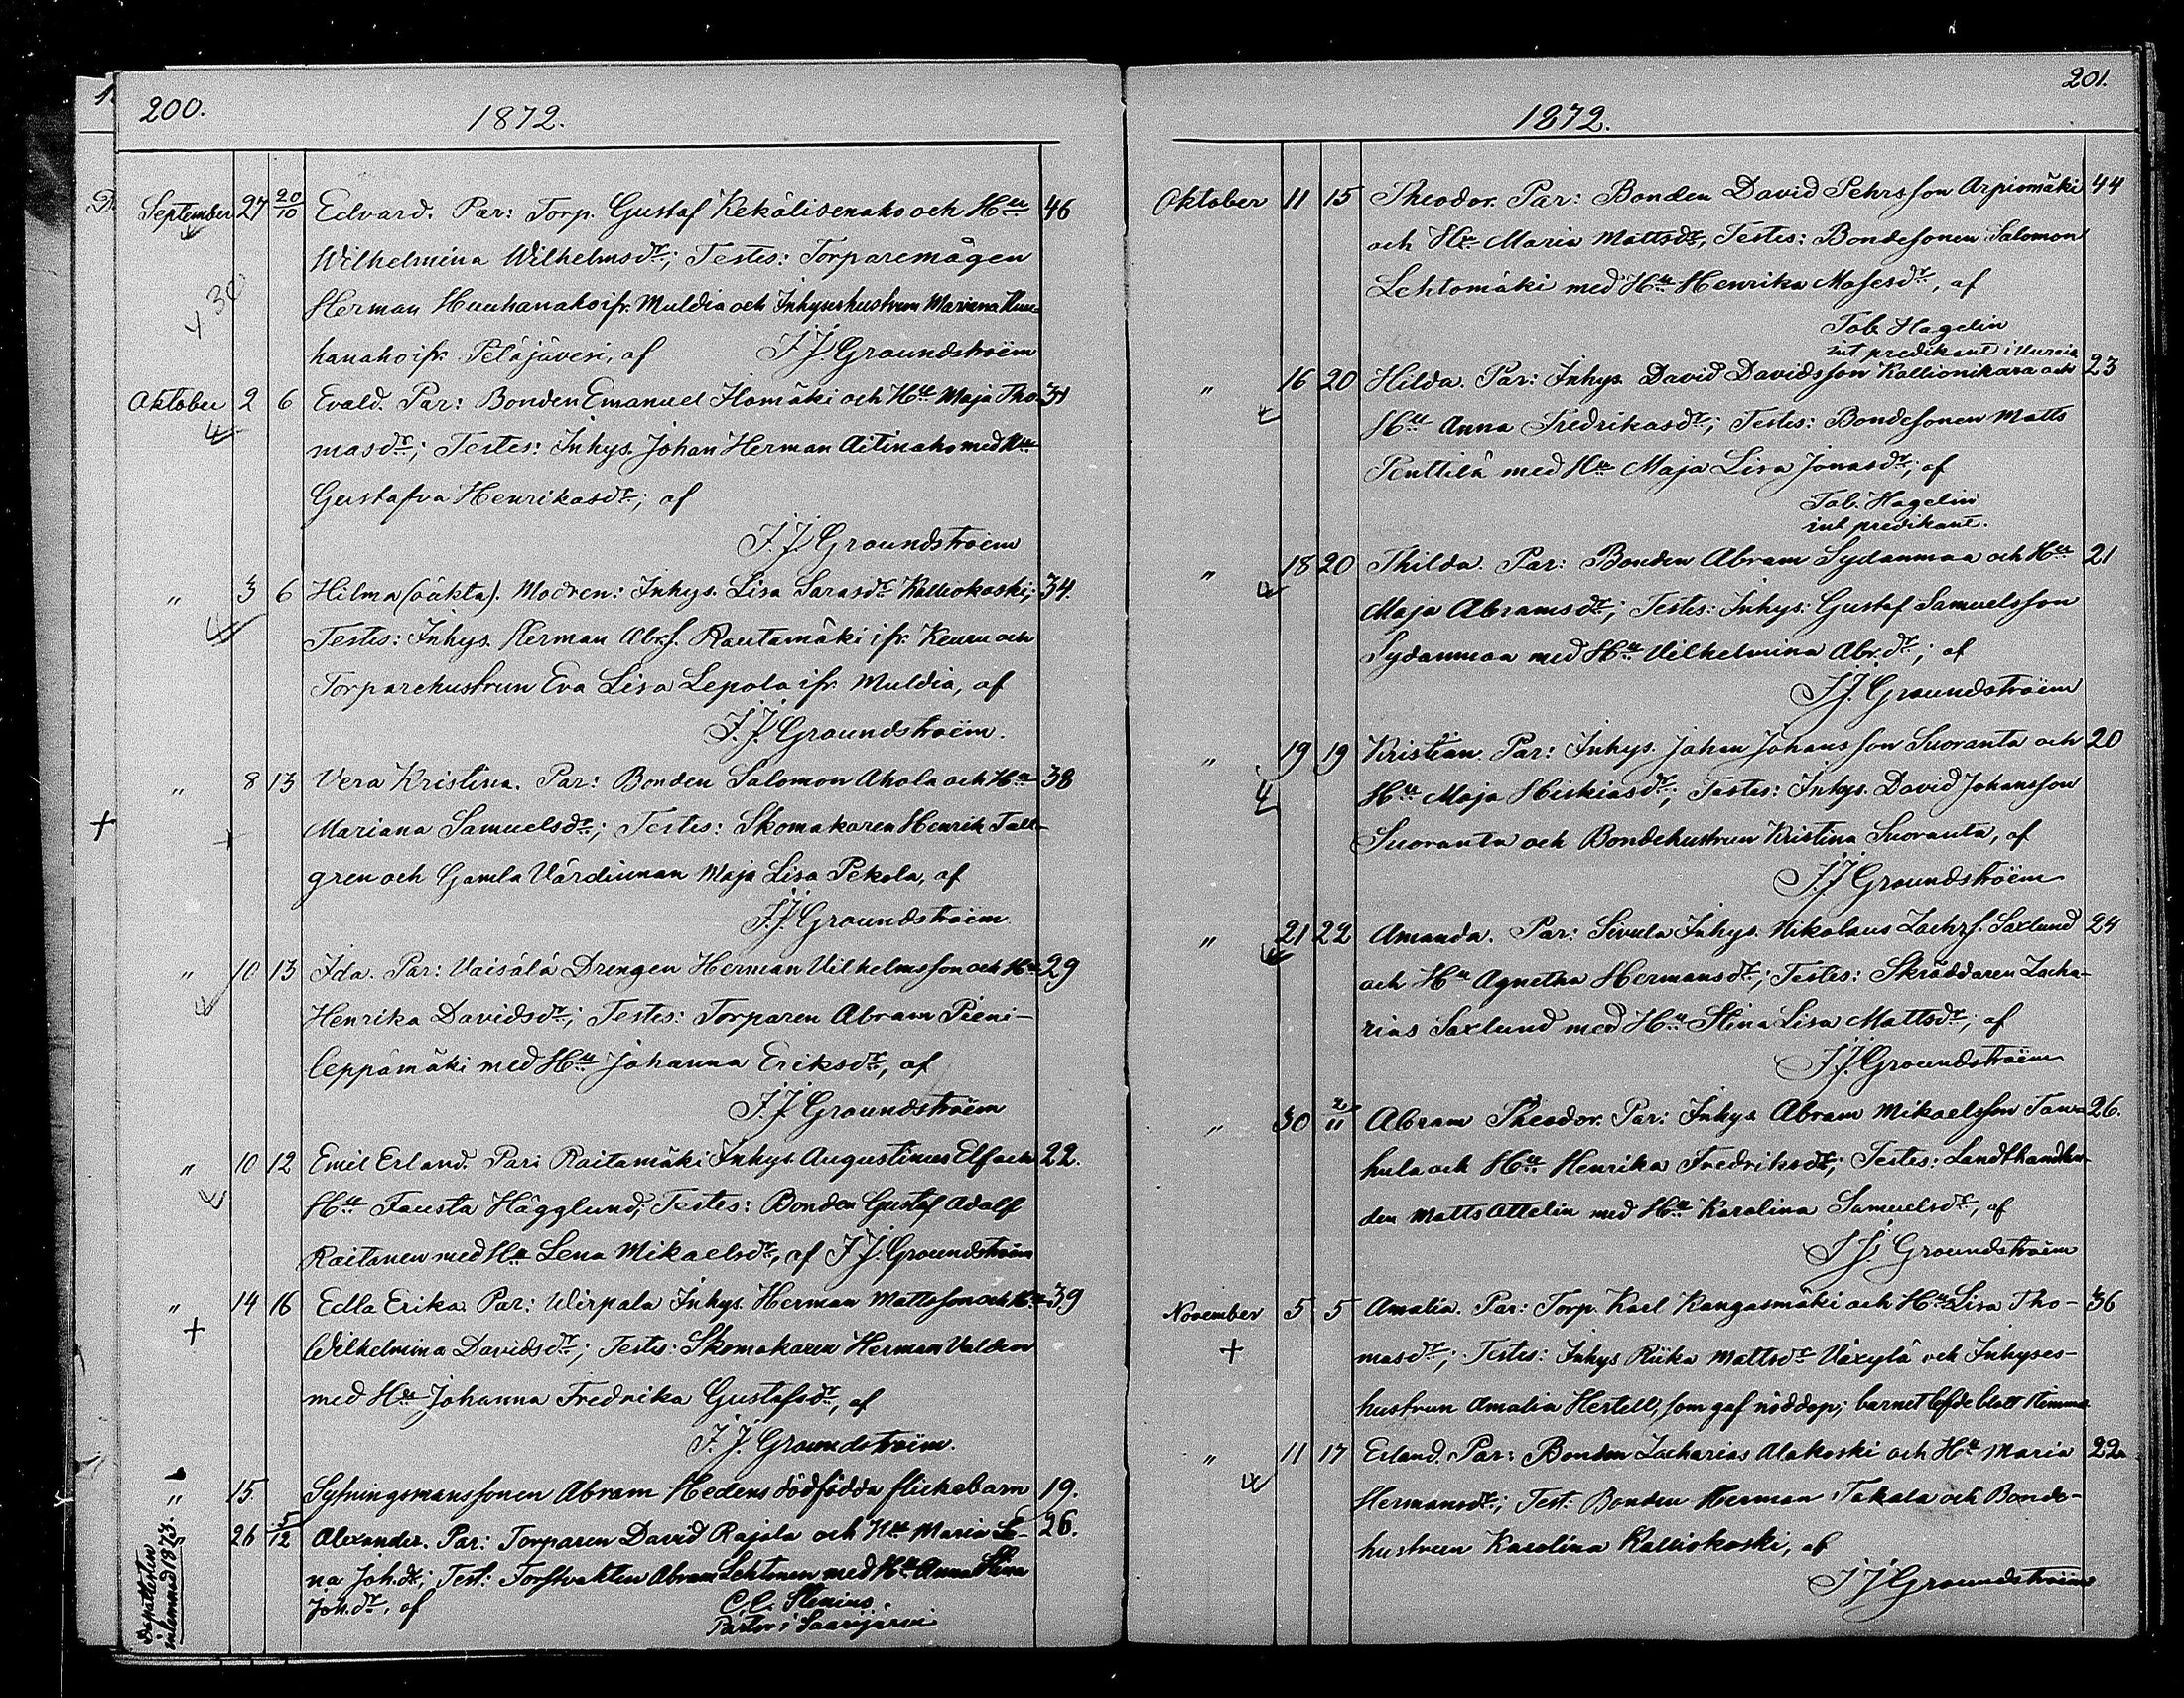 200.
1872.
September 27 20/10 Edvard. Par: Torp. Gustaf Kekälisenaho och Hu 46
Wilhelmina Wilhelmsdr; Testes: Torparemågen
Herman Huuhanaho ifr. Muldia och Inhyseshustrun Mariana Huu-
hanaho ifr. Petäjävesi, af J. J. Groundstroëm
Oktober 2 6 Evald. Par: Bonden Emanuel Homäki och Hu Maja Tho- 31
masdr; Testes: Inhys. Johan Herman Aitinaho med Hu
Gustafva Henrikasdr; af
J. J. Groundstroëm
" 3 6 Hilma (oäkta). Modren: Inhys. Lisa Sarasdr Kalliokoski; 34.
Testes: Inhys. Herman Abr.s. Rautamäki ifr. Keuru och
Torparehustrun Eva Lisa Lepola ifr. Muldia, af
J. J. Groundstroëm.
" 8 13 Vera Kristina. Par: Bonden Salomon Ahola och Hu 38
Mariana Samuelsdr; Testes: Skomakaren Henrik Tall-
gren och Gamla Värdinnan Maja Lisa Pekola, af
J. J. Groundstroëm
" 10 13 Ida. Par: Vaisälä Drengen Herman Vilhelmsson och Hu 29
Henrika Davidsdr; Testes: Torparen Abram Pieni-
leppämäki med Hu Johanna Eriksdr, af
J. J. Groundstroëm
" 10 12 Emil Erland. Par: Raitamäki Inhys. Augustinus Elf och 22.
Hu Fausta Hägglund; Testes: Bonden Gustaf Adolf
Raitanen med Hu Lena Mikaelsdr, af J. J. Groundstroëm
" 14 16 Edla Erika. Par: Wirpala Inhys. Herman Mattsson och Hu 39
Wilhelmina Davidsdr; Testes: Skomakaren Herman Valden
med Hu Johanna Fredrika Gustafsdr, af
J. J. Groundstroëm.
" 15. Syningsmanssonen Abram Hedens dödfödda flickebarn 19.
26 5/12 Alexander. Par: Torparen David Rajala och Hu Maria Le- 26.
na Joh.dr; Test: Torfvakten Abram Lehtonen med Hu Anna Stina
Joh.dr, af C. C. Stenius.
Pastor i Saarijärvi
Dopattesten
inlemnad 1873.
201.
1872.
Oktober 11 15 Theodor. Par: Bonden David Pehrsson Arpiomäki 44
och Hu Maria Mattsdr, Testes: Bondesonen Salomon
Lehtomäki med Hu Henrika Mosesdr, af
Tob. Hagelin
int predikant i Murais
" 16 20 Hilda. Par: Inhys. David Davidsson Kallionikara och 23
Hu Anna Fredrikasdr; Testes: Bondesonen Matts
Penttilä med Hu Maja Lisa Jonasdr, af
Tob. Hagelin
int predikant.
" 18 20 Thilda. Par: Bonden Abram Sydanmaa och Hu 21
Maja Abramsdr; Testes: Inhys: Gustaf Samuelsson
Sydanmaa med Hu Vilhelmina Abr.dr; af
J. J. Groundstroëm
" 19 19 Kristian. Par: Inhys. Johan Johansson Suoranta och 20
Hu Maja Hiskiasdr; Testes: Inhys. David Johansson
Suoranta och Bondehustrun Kristina Suoranta, af
J. J. Groundstroëm
" 21 22 Amanda. Par: Sevula Inhys. Nikolaus Zachr.s. Saxlund 24
och Hu Agnetha Hermansdr; Testes: Skräddaren Zacha-
rias Saxlund med Hu Stina Lisa Mattsdr, af
J. J. Groundstroëm
" 30 2/11 Abram Theodor. Par: Inhys. Abram Mikaelsson Taw- 26.
hula och Hu Henrika Fredriksdr; Testes: Landthandlan-
den Matts Ottelin med Hu Karolina Samuelsdr, af
J. J. Groundstroëm
November 5 5 Amalia. Par: Torp. Karl Kangasmäki och Hu Lisa Tho- 36
masdr; Testes: Inhys Riika Mattsdr Växylä och Inhyses-
hustrun Amalia Hertell, som gaf nöddop; barnet lefde blott timma
" 11 17 Erland. Par: Bonden Zacharias Alakoski och Hu Maria 22
Hermansdr; Test: Bonden Herman Takala och Bonde-
hustrun Karolina Kalliokoski, af
J. J. Groundstroëm